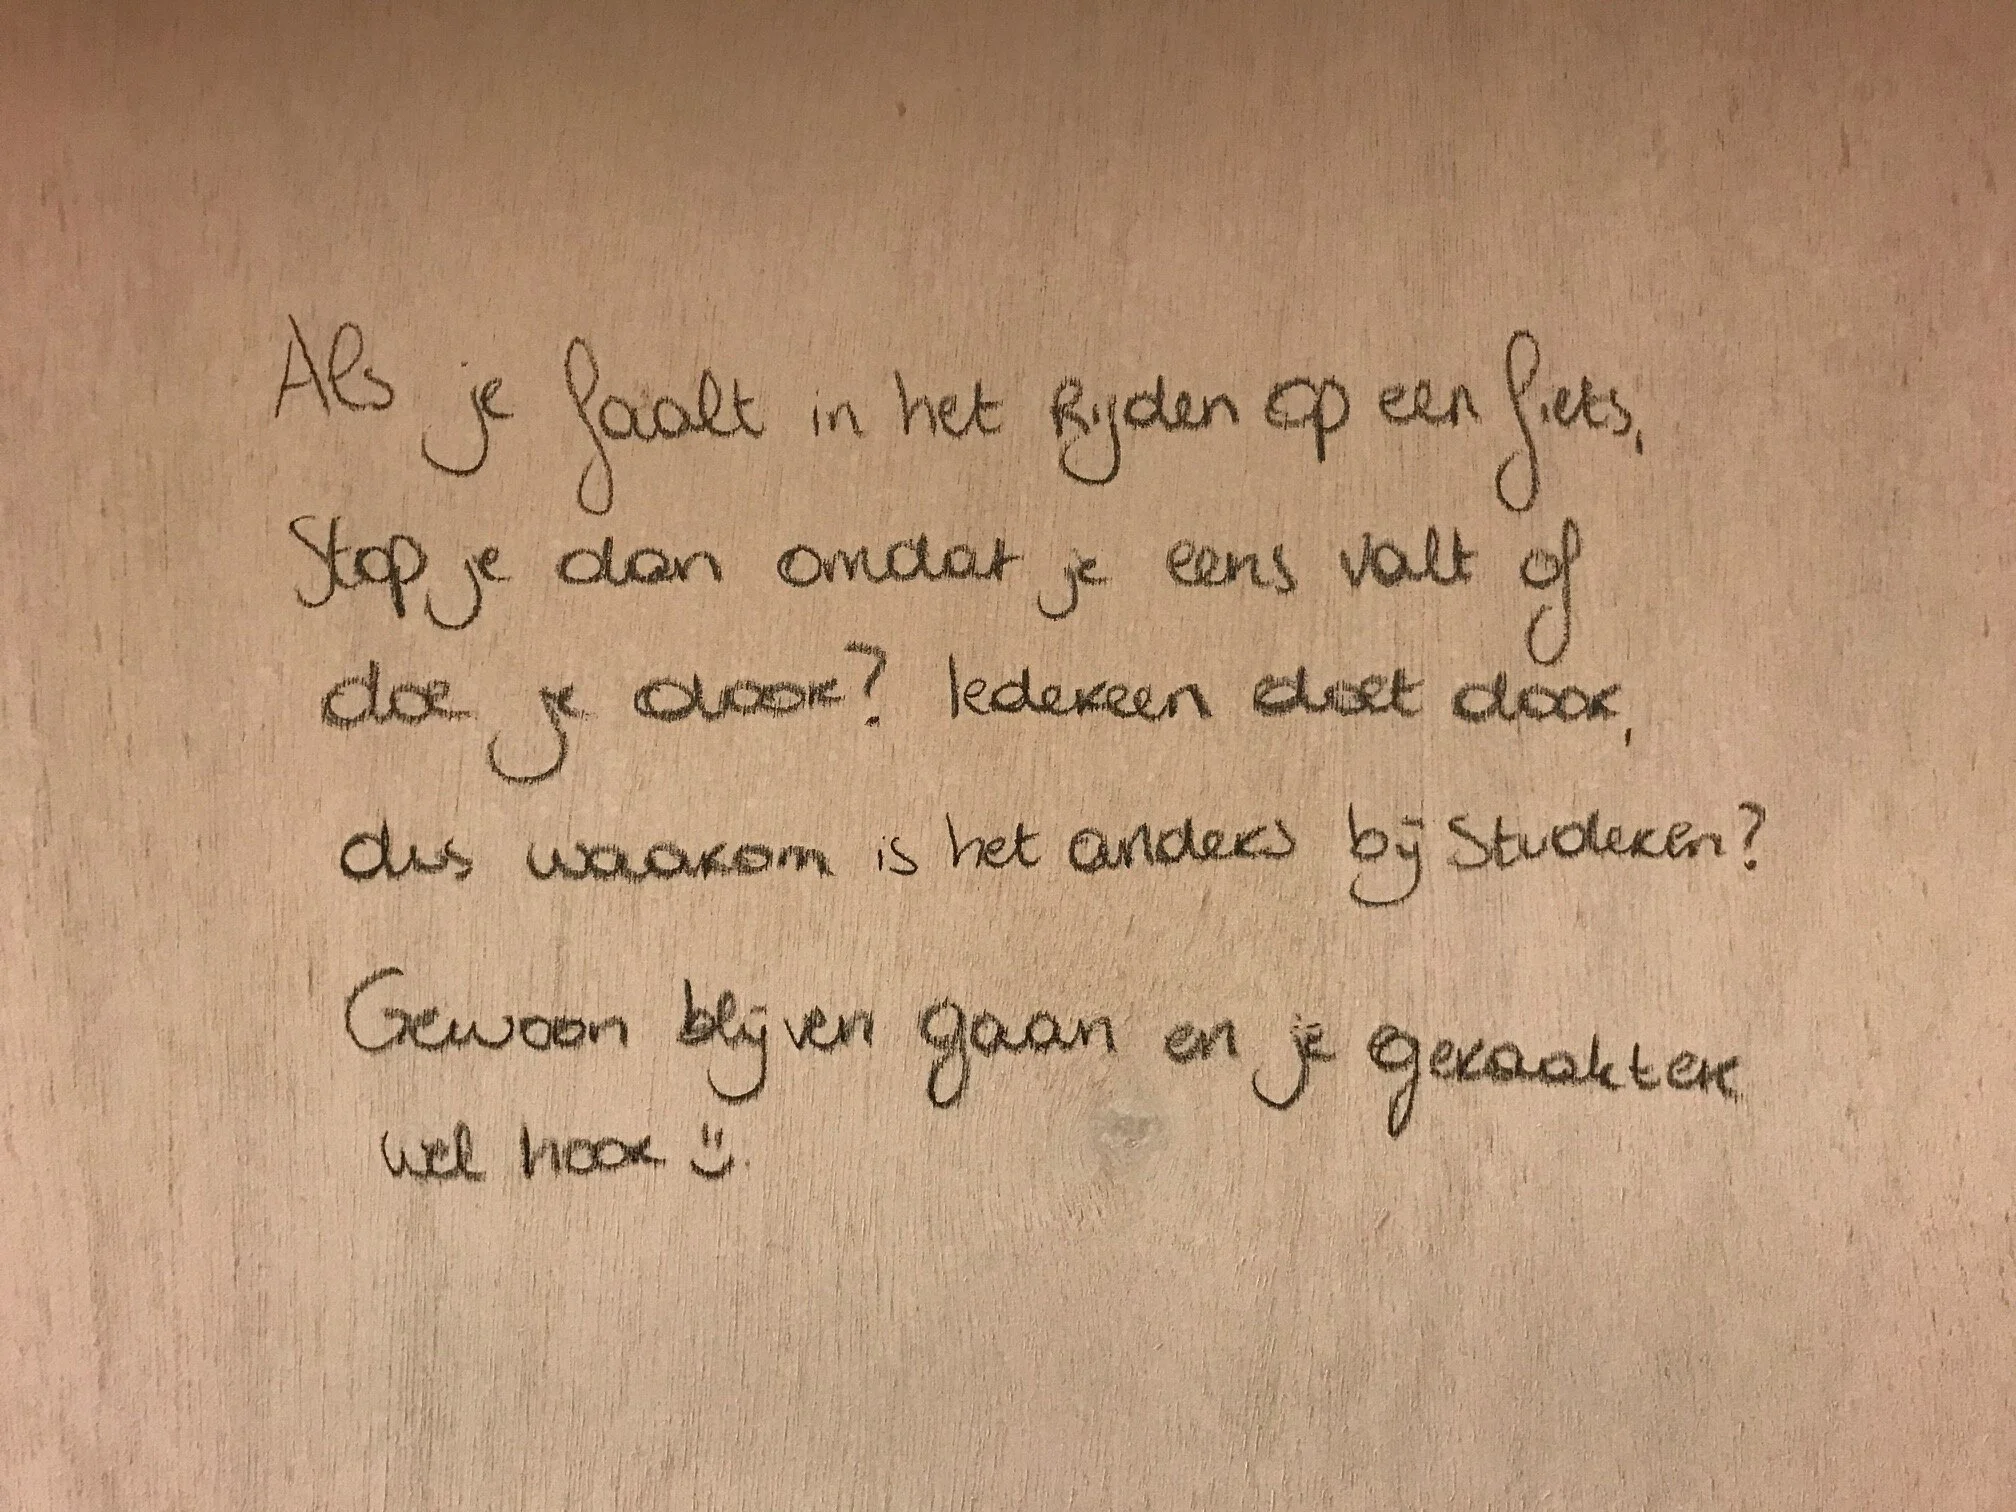 Als je faalt in het Rijden op een fiets,
Stop je dan omdat je eens valt of
doe je door? Iedereen doet door,
dus waarom is het anders bij Studeren?
Gewoon blijven gaan en je geraakt er
wel hoor :)